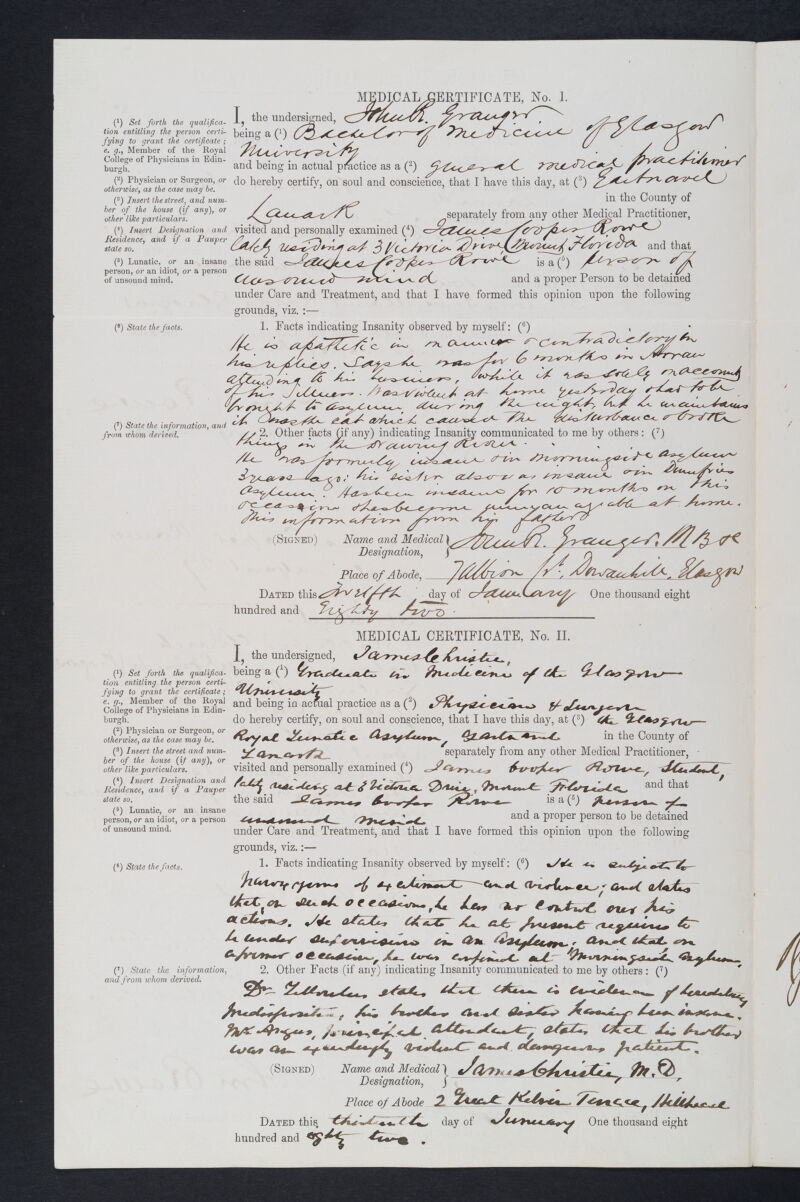 MEDICAL CERTIFICATE, No. I.
(¹) Set forth the qualifica-
tion entitling the person certi-
fying to grant the certificate;
e. g., Member of the Royal
College of Physicians in Edin-
burgh.
(²) Physician or Surgeon, or
otherwise, as the case may be.
(³) Insert the street, and num-
ber of the house (if any), or
other like particulars.
(⁴) Insert Designation and
Residence, and if a Pauper
state so.
(⁵) Lunatic, or an insane
person, or an idiot, or a person
of unsound mind.
(⁶) State the facts.
(⁷) State the information, and
from whom derived.
I, the undersigned, John R. Granger
being a (¹) Bachelor of Medicine of Glasgow
University
and being in actual practice as a (²) general medical practitioner
do hereby certify, on soul and conscience, that I have this day, at (³) Gartnavel
in the County of
Lanark separately from any other Medical Practitioner,
visited and personally examined (⁴) James Cooper Rowe
lately residing at 3 Victoria Drive Mount Florida and that
the said James Cooper Rowe is a (⁵) person of
unsound mind and a proper Person to be detained
under Care and Treatment, and that I have formed this opinion upon the following
grounds, viz. :—
1. Facts indicating Insanity observed by myself: (⁶)
He is apathetic in manner & contradictory in
his replies. Says he was for 6 months in Arran
attending to his business, while it was solely on account
of his illness. Was violent at home yesterday & had to be
brought to asylum during the night, but he maintains
it was the cat which caused the disturbance & broke
things in the Drawing Room.
2. Other facts (if any) indicating Insanity communicated to me by others: (⁷)
He was formerly insane & in Morningside Asylum
3 years ago: his sister also was insane & in Dumfries
Asylum. Has been insane for 10 months on this
occasion & has become unmanageable at home.
This information from his father
(SIGNED) Name and Medical Designation, John R. Granger. M B &c
Place of Abode, 7 Albion St. Dowanhill, Glasgow
DATED this twelfth day of January One thousand eight
hundred and Eighty two.
MEDICAL CERTIFICATE, No. II.
(¹) Set forth the qualifica-
tion entitling the person certi-
fying to grant the certificate;
e. g., Member of the Royal
College of Physicians in Edin-
burgh.
(²) Physician or Surgeon, or
otherwise, as the case may be.
(³) Insert the street and num-
ber of the house (if any), or
other like particulars.
(⁴) Insert Designation and
Residence, and if a Pauper
state so.
(⁵) Lunatic, or an insane
person, or an idiot, or a person
of unsound mind.
(⁶) State the facts.
(⁷) State the information,
and from whom derived.
I, the undersigned, James Christie,
being a (¹) Graduate in Medicine of the Glasgow
University
and being in actual practice as a (²) Physician & Surgeon
do hereby certify, on soul and conscience, that I have this day, at (³) the Glasgow
Royal Lunatic Asylum, Gartnavel in the County of
Lanark separately from any other Medical Practitioner,
visited and personally examined (⁴) James Cooper Rowe, Student,
lately residing at 3 Victoria Drive, Mount Florida and that
the said James Cooper Rowe is a (⁵) person of
unsound mind and a proper person to be detained
under Care and Treatment, and that I have formed this opinion upon the following
grounds, viz. :—
1. Facts indicating Insanity observed by myself: (⁶) He is subject to
paroxysms of excitement and violence; and states
that, on such occasions, he has no control over his
actions. He states that he at present requires to
be under supervision in an Asylum; and that on
a former occasion, he was confined at Morningside Asylum.
2. Other Facts (if any) indicating Insanity communicated to me by others: (⁷)
Dr Yellowlees states that there is evidence of hereditary
predisposition; his brother and sister having been insane.
Mr Angus, principal attendant, states that his brother
was an exceedingly violent and dangerous patient.
(SIGNED) Name and Medical Designation, James Christie, M.D,
Place of Abode 2 Great Kelvin Terrace, Hillhead
DATED this thirteenth day of January One thousand eight
hundred and eighty two.